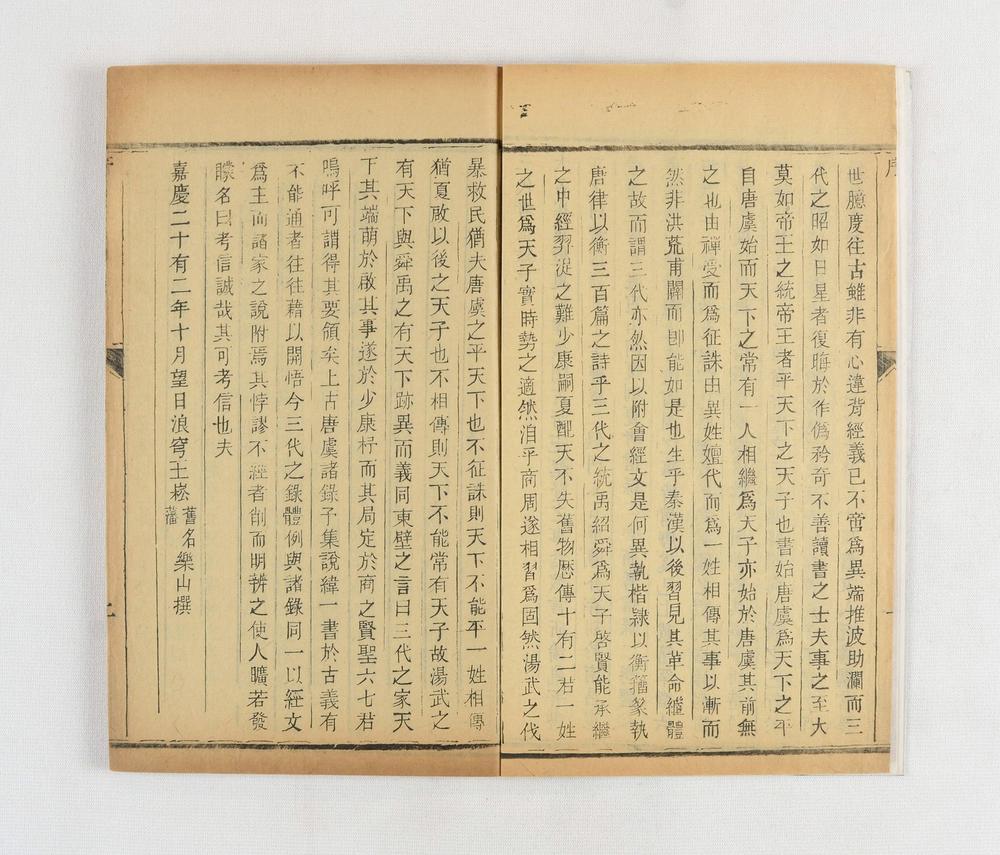 序
世臆度往古雖非有心違背經義已不啻爲異端推波助瀾而三
代之昭如日星者復晦於作僞矜奇不善讀書之士夫事之至大
莫如帝王之統帝王者平天下之天子也書始唐虞爲天下之平
自唐虞始而天下之常有一人相繼爲天子亦始於唐虞其前無
之也由禪受而爲征誅由異姓嬗代而爲一姓相傳其事以漸而
然非洪荒甫闢而即能如是也生乎秦漢以後習見其革命繼體
之故而謂三代亦然因以附會經文是何異執楷隸以衡籀篆執
唐律以衡三百篇之詩乎三代之統禹紹舜爲天子啓賢能承繼
之中經羿浞之難少康嗣夏配天不失舊物歷傳十有二君一姓
之世爲天子實時勢之適然洎乎商周遂相習爲固然湯武之伐
暴救民猶夫唐虞之平天下也不征誅則天下不能平一姓相傳
猶夏啟以後之天子也不相傳則天下不能常有天子故湯武之
有天下與舜禹之有天下跡異而義同東壁之言曰三代之家天
下其端萌於啟其事遂於少康杼而其局定於商之賢聖六七君
嗚呼可謂得其要領矣上古唐虞諸錄予集說緯一書於古義有
不能通者往往藉以開悟今三代之錄體例與諸錄同一以經文
爲主而諸家之說附焉其悖謬不經者削而明辨之使人曠若發
矇名曰考信誠哉其可考信也夫
嘉慶二十有二年十月望日浪穹王崧舊名樂山撰
藩